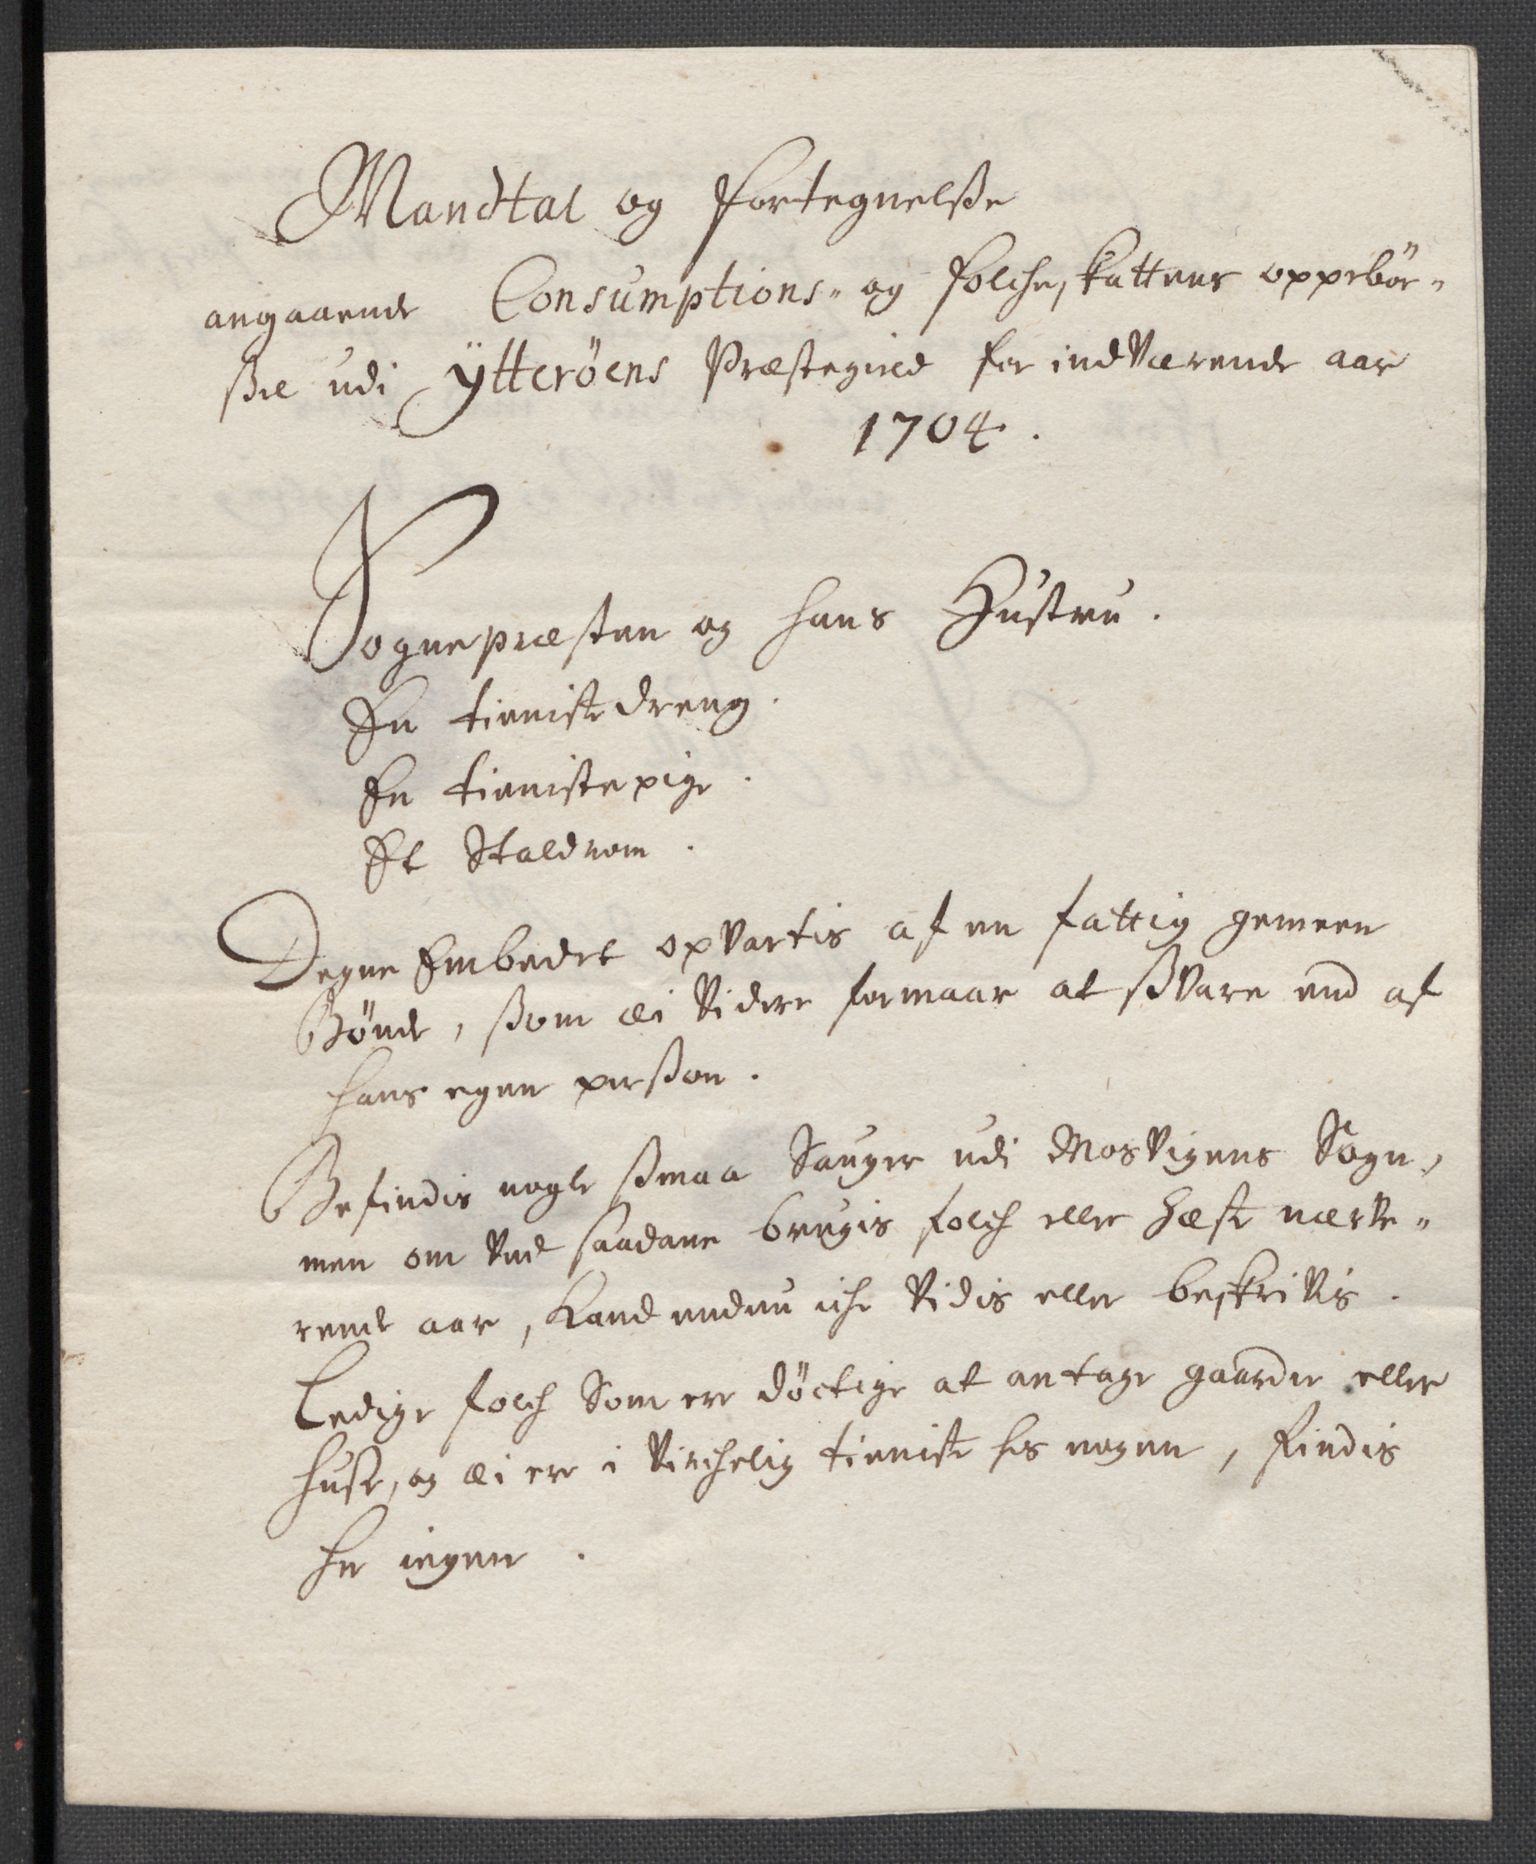 Mandtal og fortegnelße
angaaende Consumptions- og folcheskattens oppebör-
ßel udi Ytteröens Præstegield for indværende aar
1704.
Sognepræsten og hans Hustru.
En tieniste dreng.
En tienistepige.
Et Staldrom.
Degne Embedet opvartis af en fattig gemeen
Bönde, ßom æi videre formaar at ßvare end af
hans egen perßon.
Befindis nogle ßmaa Sauger udi Mosvigens Sogn,
men om ved saadane brugis folch eller hæst nærve-
rende aar, kand endnu iche vidis eller beskrivis.
Ledige folch Som ere döctige at antage gaarde eller
huse, og æi ere i virchelig tieniste hos nogen, findis
her ingen.